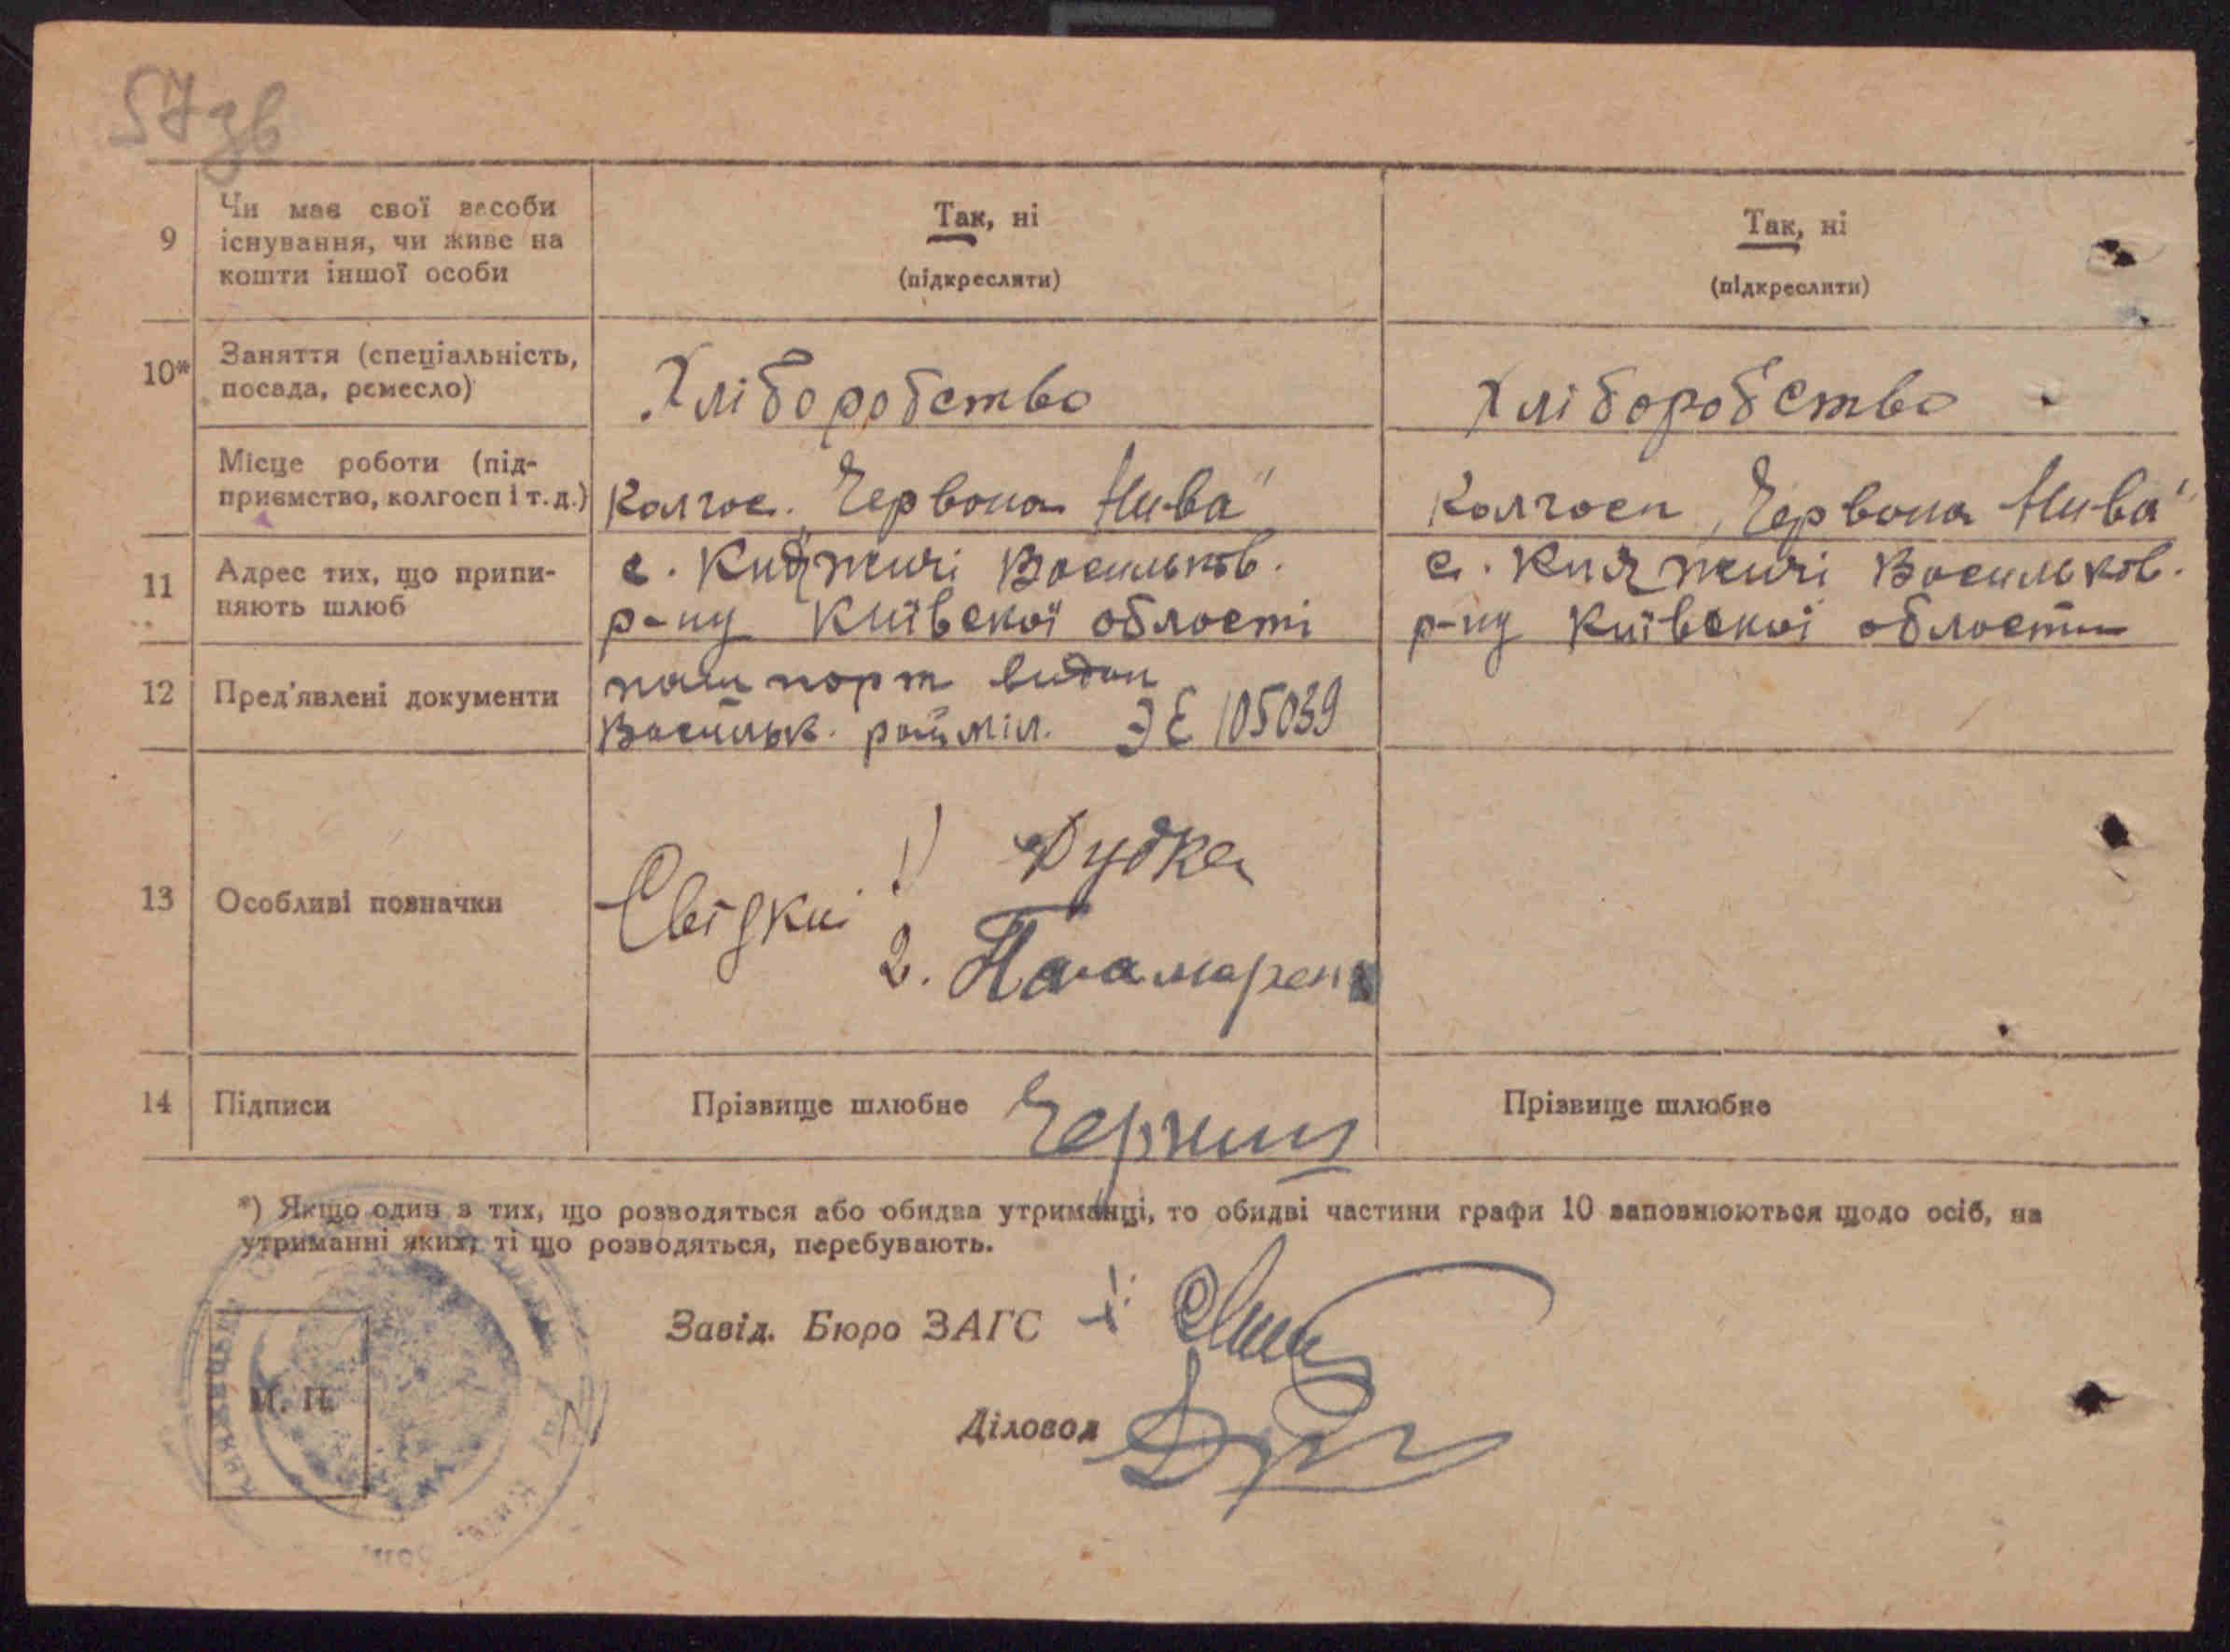 57зв
9 Чи має свої засоби
існування, чи живе на
кошти іншої особи
Так, ні
(підкреслити)
Так, ні
(підкреслити)
10* Заняття (спеціальність,
посада, ремесло)
Хліборобство
Хліборобство
Місце роботи (під-
приємство, колгосп і т. д.)
Колгос. „Червона Нива"
Колгосп „Червона Нива"
11 Адрес тих, що припи-
няють шлюб
с. Княжичі Васильков.
р-ну Київскої області
с. Княжичі Васильков.
р-ну Київскої області
12 Пред'явлені документи
пашпорт видан
Васильк. райміл. ЭЕ 105039
13 Особливі позначки
Свідки 1) Дудка
2. Панамарен
14 Підписи
Прізвище шлюбне
Прізвище шлюбне
*) Якщо один з тих, що розводяться або обидва утриманці, то обидві частини графи 10 заповнюються щодо осіб, на
утриманні яких, ті що розводяться, перебувають.
Завід. Бюро ЗАГС
Діловод
М. П.